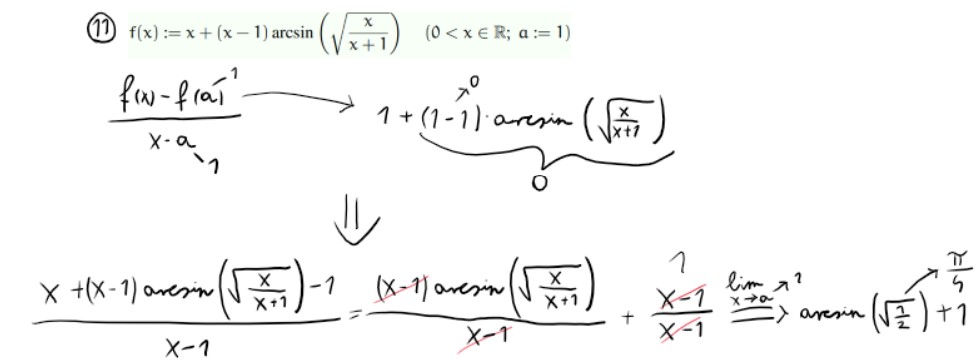 ⑪ f(x) := x + (x − 1) arcsin (√(x/(x+1))) (0 < x ∈ ℝ; a := 1)
(f(x) - f(a))/(x - a) 1 1 → 1 + (1-1) · arcsin (√(x/(x+1))) 0 0
⇓
(x + (x-1) arcsin (√(x/(x+1))) - 1)/(x-1) = ((x-1) arcsin (√(x/(x+1))))/(x-1) + (x-1)/(x-1) 1 lim x→a 1 ⇒ arcsin (√(1/2)) + 1 π/4